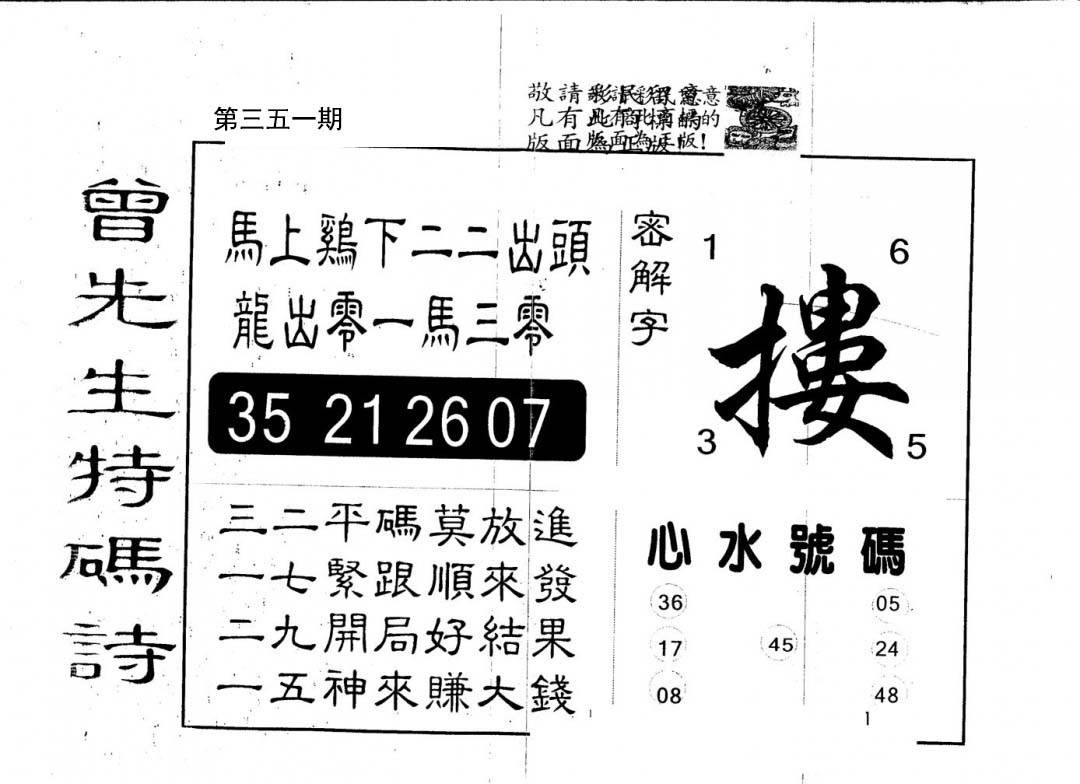 第三五一期
敬請
凡有
版面
意
的
版!
曾先生特碼詩
馬上鷄下二二出頭
龍出零一馬三零
35 21 26 07
三二平碼莫放進
一七緊跟順來發
二九開局好結果
一五神來賺大錢
密解字
1 6
摟
3 5
心水號碼
36 05
17 45 24
08 48
1